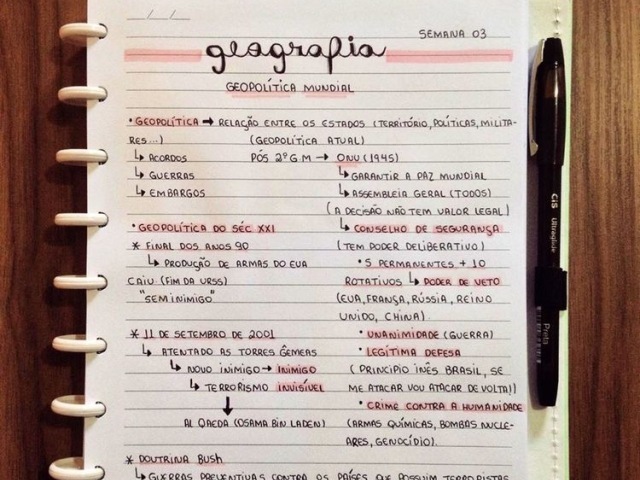 __/__/__
SEMANA 03
geografia
GEOPOLÍTICA MUNDIAL
• GEOPOLÍTICA → RELAÇÃO ENTRE OS ESTADOS (TERRITÓRIO, POLÍTICAS, MILITA-
RES...) (GEOPOLÍTICA ATUAL)
↳ ACORDOS PÓS 2ºGM → ONU (1945)
↳ GUERRAS ↳ GARANTIR A PAZ MUNDIAL
↳ EMBARGOS ↳ ASSEMBLEIA GERAL (TODOS)
(A DECISÃO NÃO TEM VALOR LEGAL)
• GEOPOLÍTICA DO SÉC XXI ↳ CONSELHO DE SEGURANÇA
* FINAL DOS ANOS 90 (TEM PODER DELIBERATIVO)
↳ PRODUÇÃO DE ARMAS DO EUA • 5 PERMANENTES + 10
CAIU (FIM DA URSS) ROTATIVOS ↳ PODER DE VETO
"SEM INIMIGO" (EUA, FRANÇA, RÚSSIA, REINO
UNIDO, CHINA).
* 11 DE SETEMBRO DE 2001 • UNANIMIDADE (GUERRA)
↳ ATENTADO AS TORRES GÊMEAS • LEGÍTIMA DEFESA
↳ NOVO INIMIGO → INIMIGO (PRINCIPIO INÊS BRASIL, SE
↳ TERRORISMO INVISÍVEL ME ATACAR VOU ATACAR DE VOLTA!)
↓ • CRIME CONTRA A HUMANIDADE
AL QAEDA (OSAMA BIN LADEN) (ARMAS QUÍMICAS, BOMBAS NUCLE-
ARES, GENOCÍDIO).
* DOUTRINA BUSH
↳ GUERRAS PREVENTIVAS CONTRA OS PAÍSES QUE POSSUIM TERRORISTAS
CiS Ultraglide
Preta